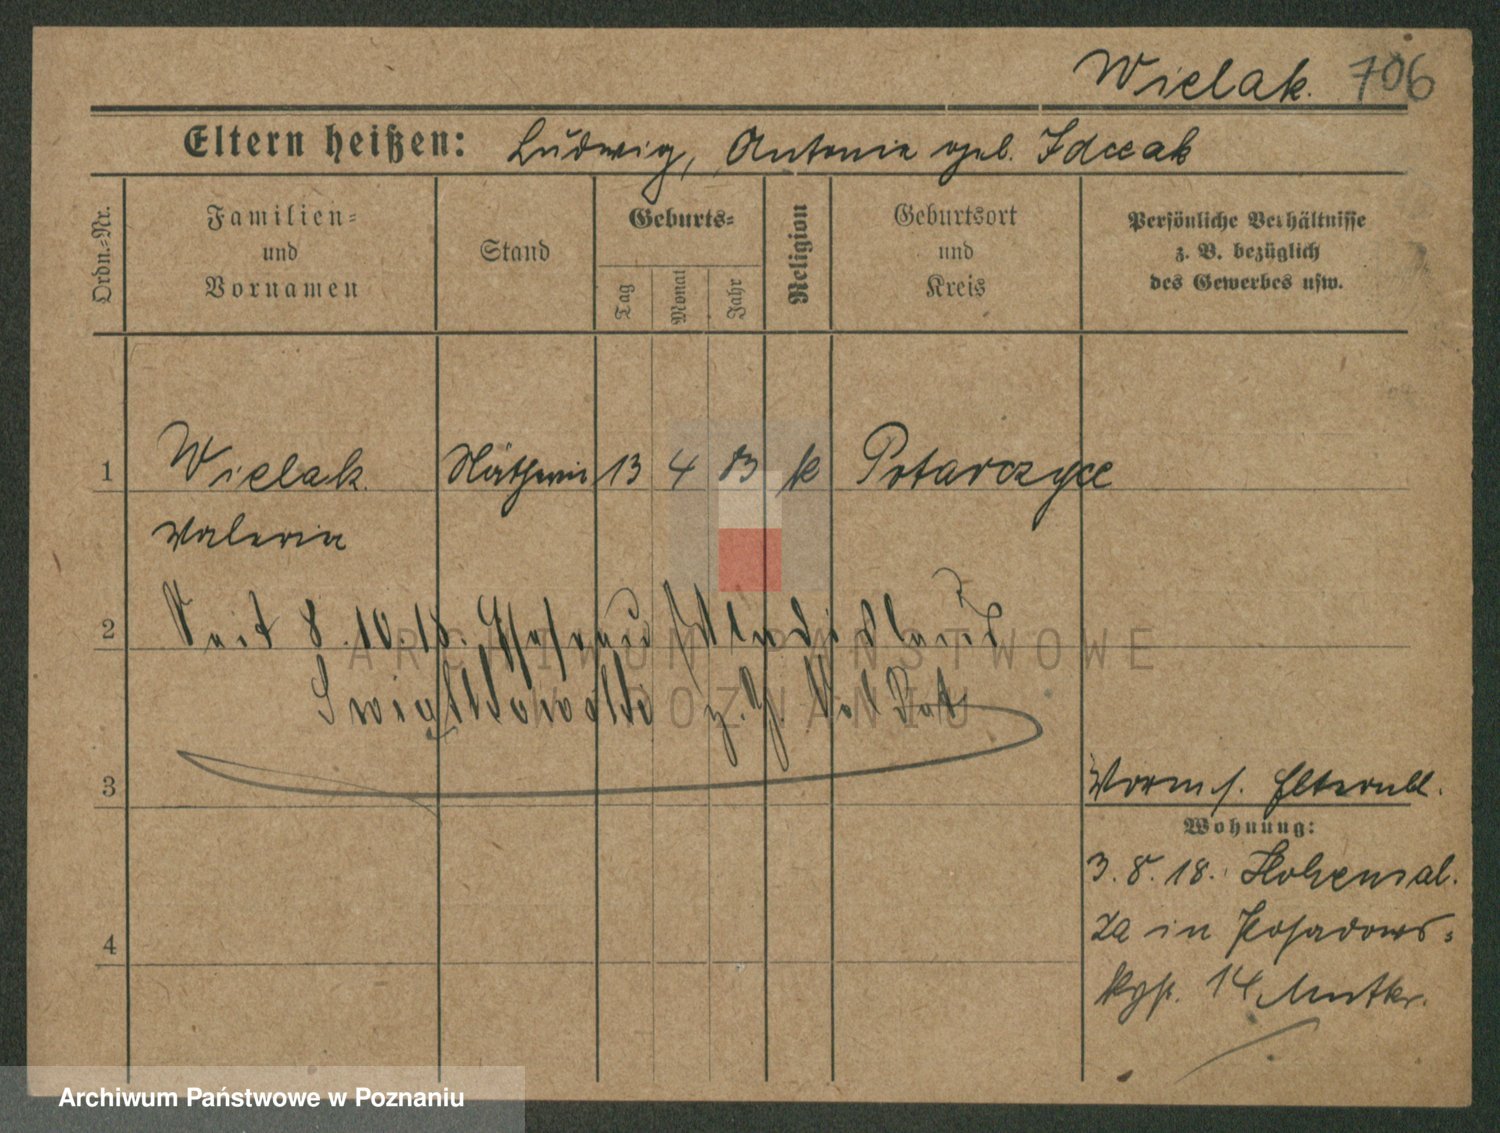 Wielak. 706
Eltern heißen: Ludwig, Antonie geb. Idczak
Ordn.-Nr.
Familien-
und
Vornamen
Stand
Geburts-
Tag
Monat
Jahr
Religion
Geburtsort
und
Kreis
Persönliche Verhältnisse
z. B. bezüglich
des Gewerbes usw.
1 Wielak. Näherin 13 4 83 k Potarzyce
Valeria
2 Seit 8.10.18.
z. Z.
3
Elternbl.
Wohnung:
3.8.18. Hohensal
za in Posadows-
kystr. 14
4
ARCHIWUM PAŃSTWOWE
W POZNANIU
Archiwum Państwowe w Poznaniu